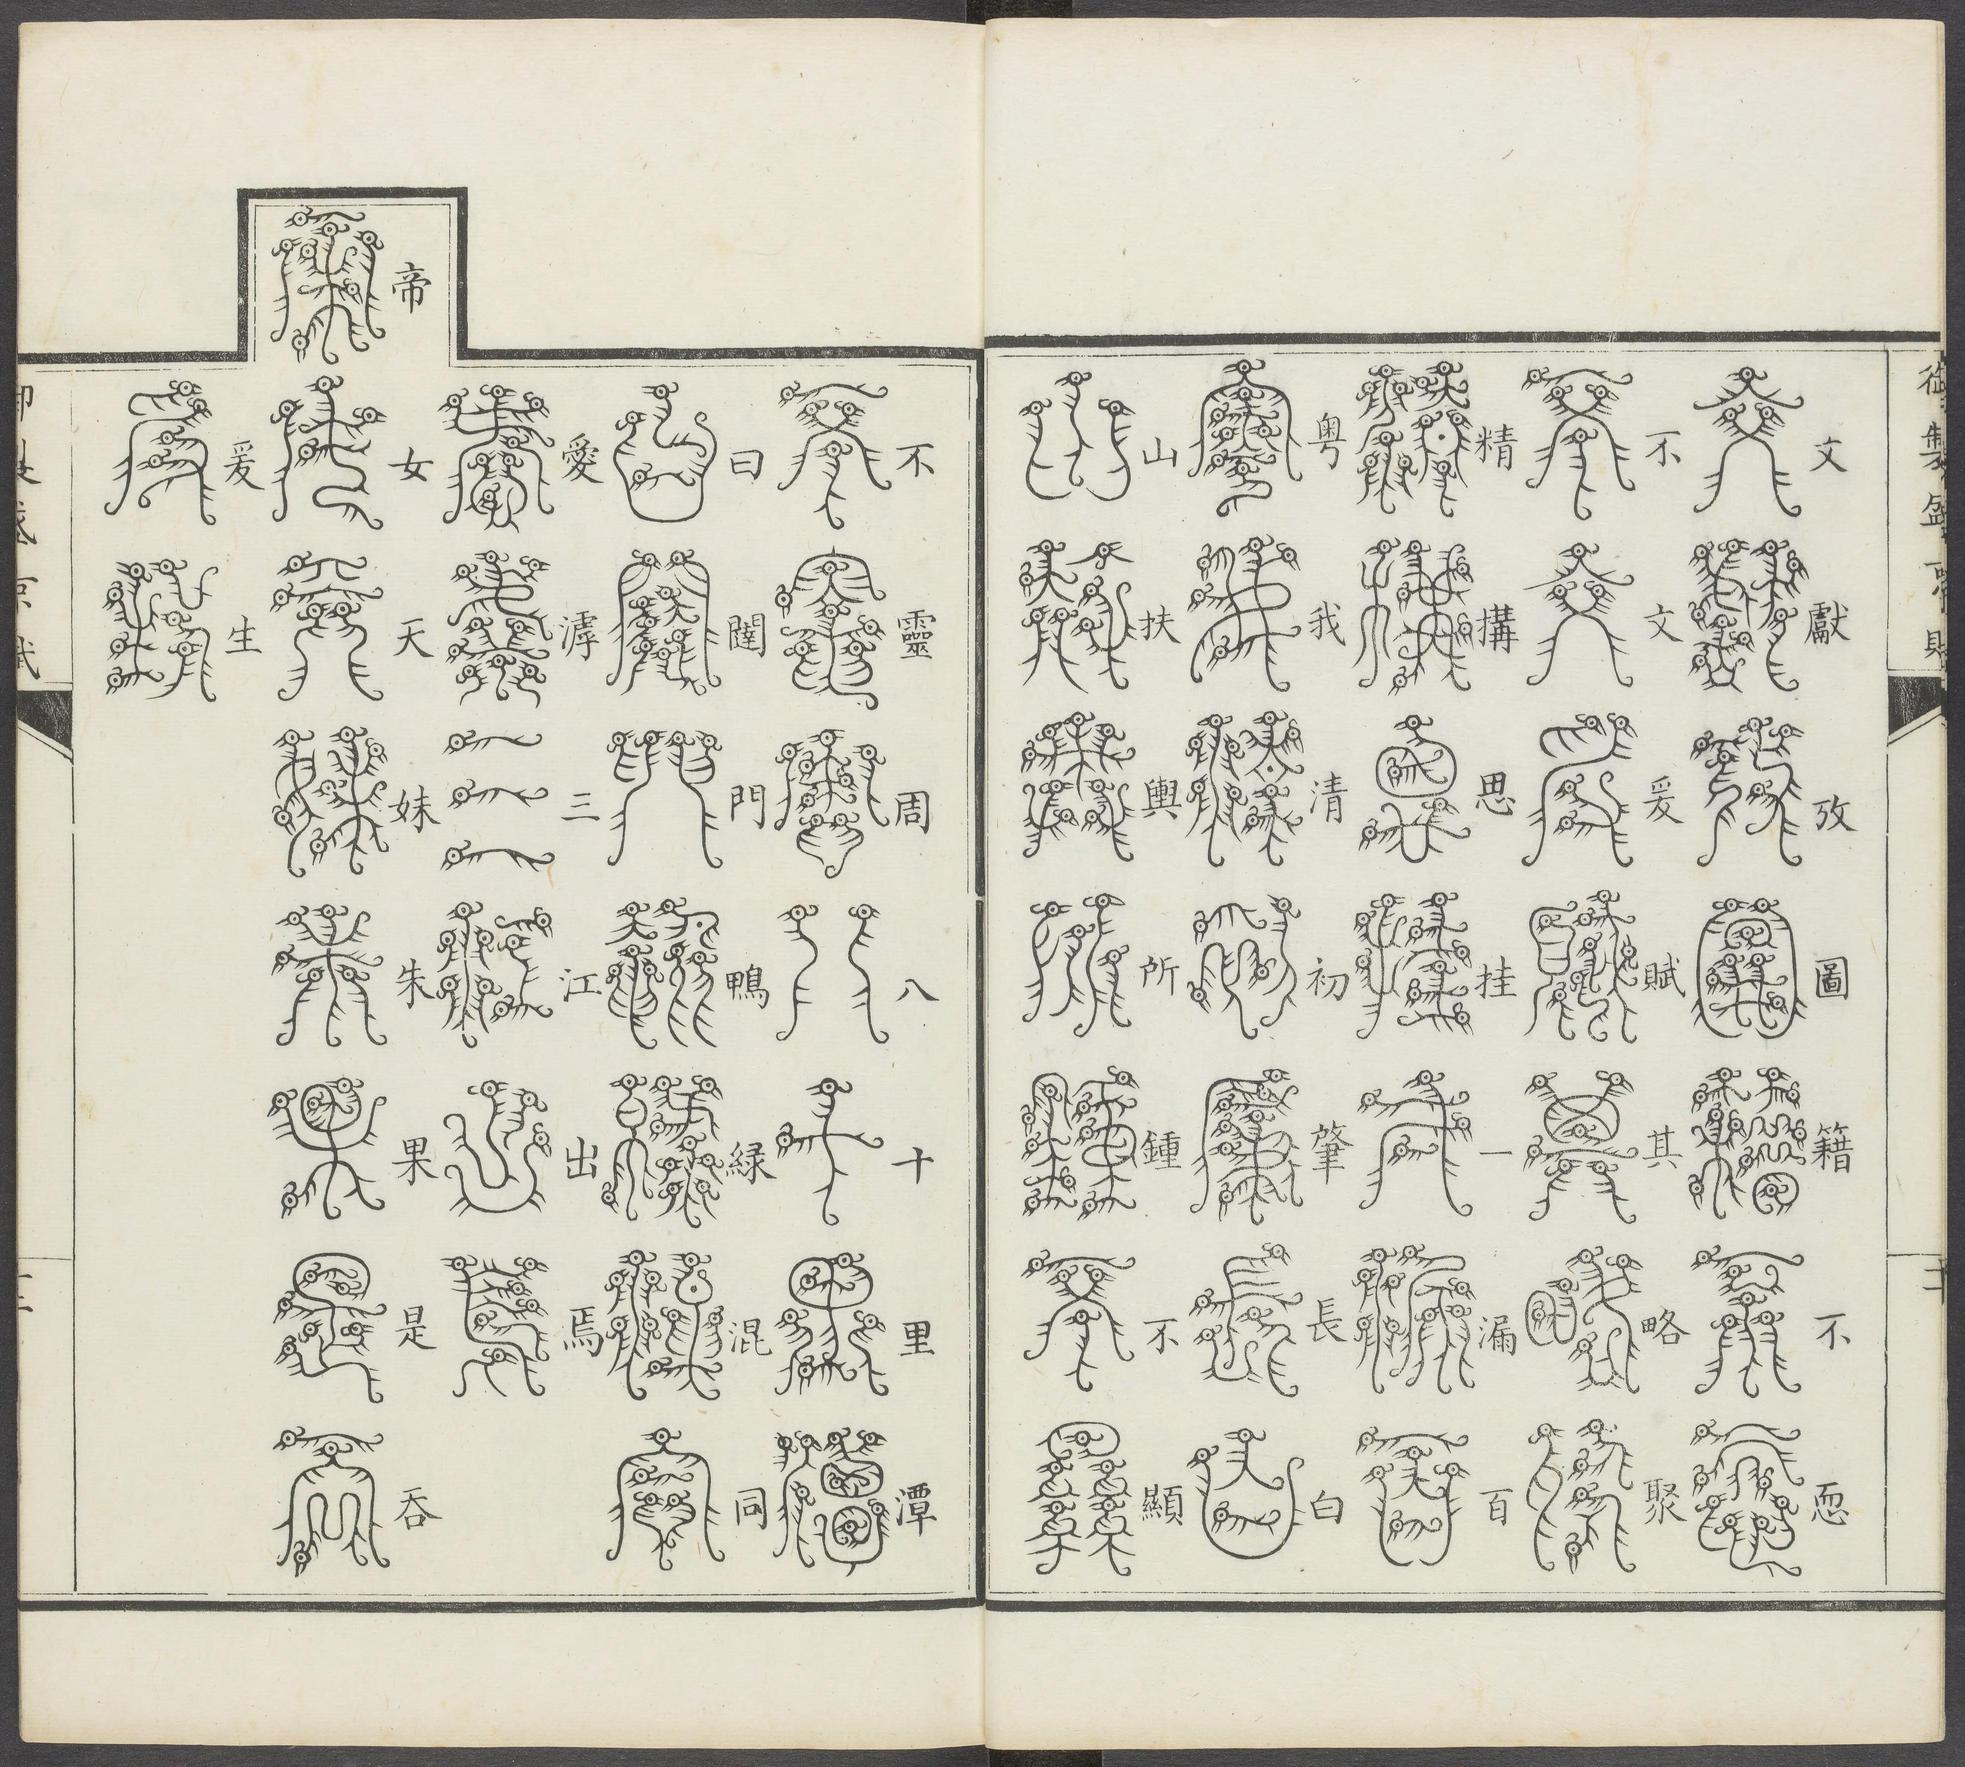 御製盛京賦
文獻攷圖籍不恧
不文爰賦其略聚
精搆思挂一漏百
粵我清初肇長白
山扶輿所鍾不顯
不靈周八十里潭
曰闥門鴨綠混同
愛滹三江出焉
帝女天妹朱果是吞
爰生